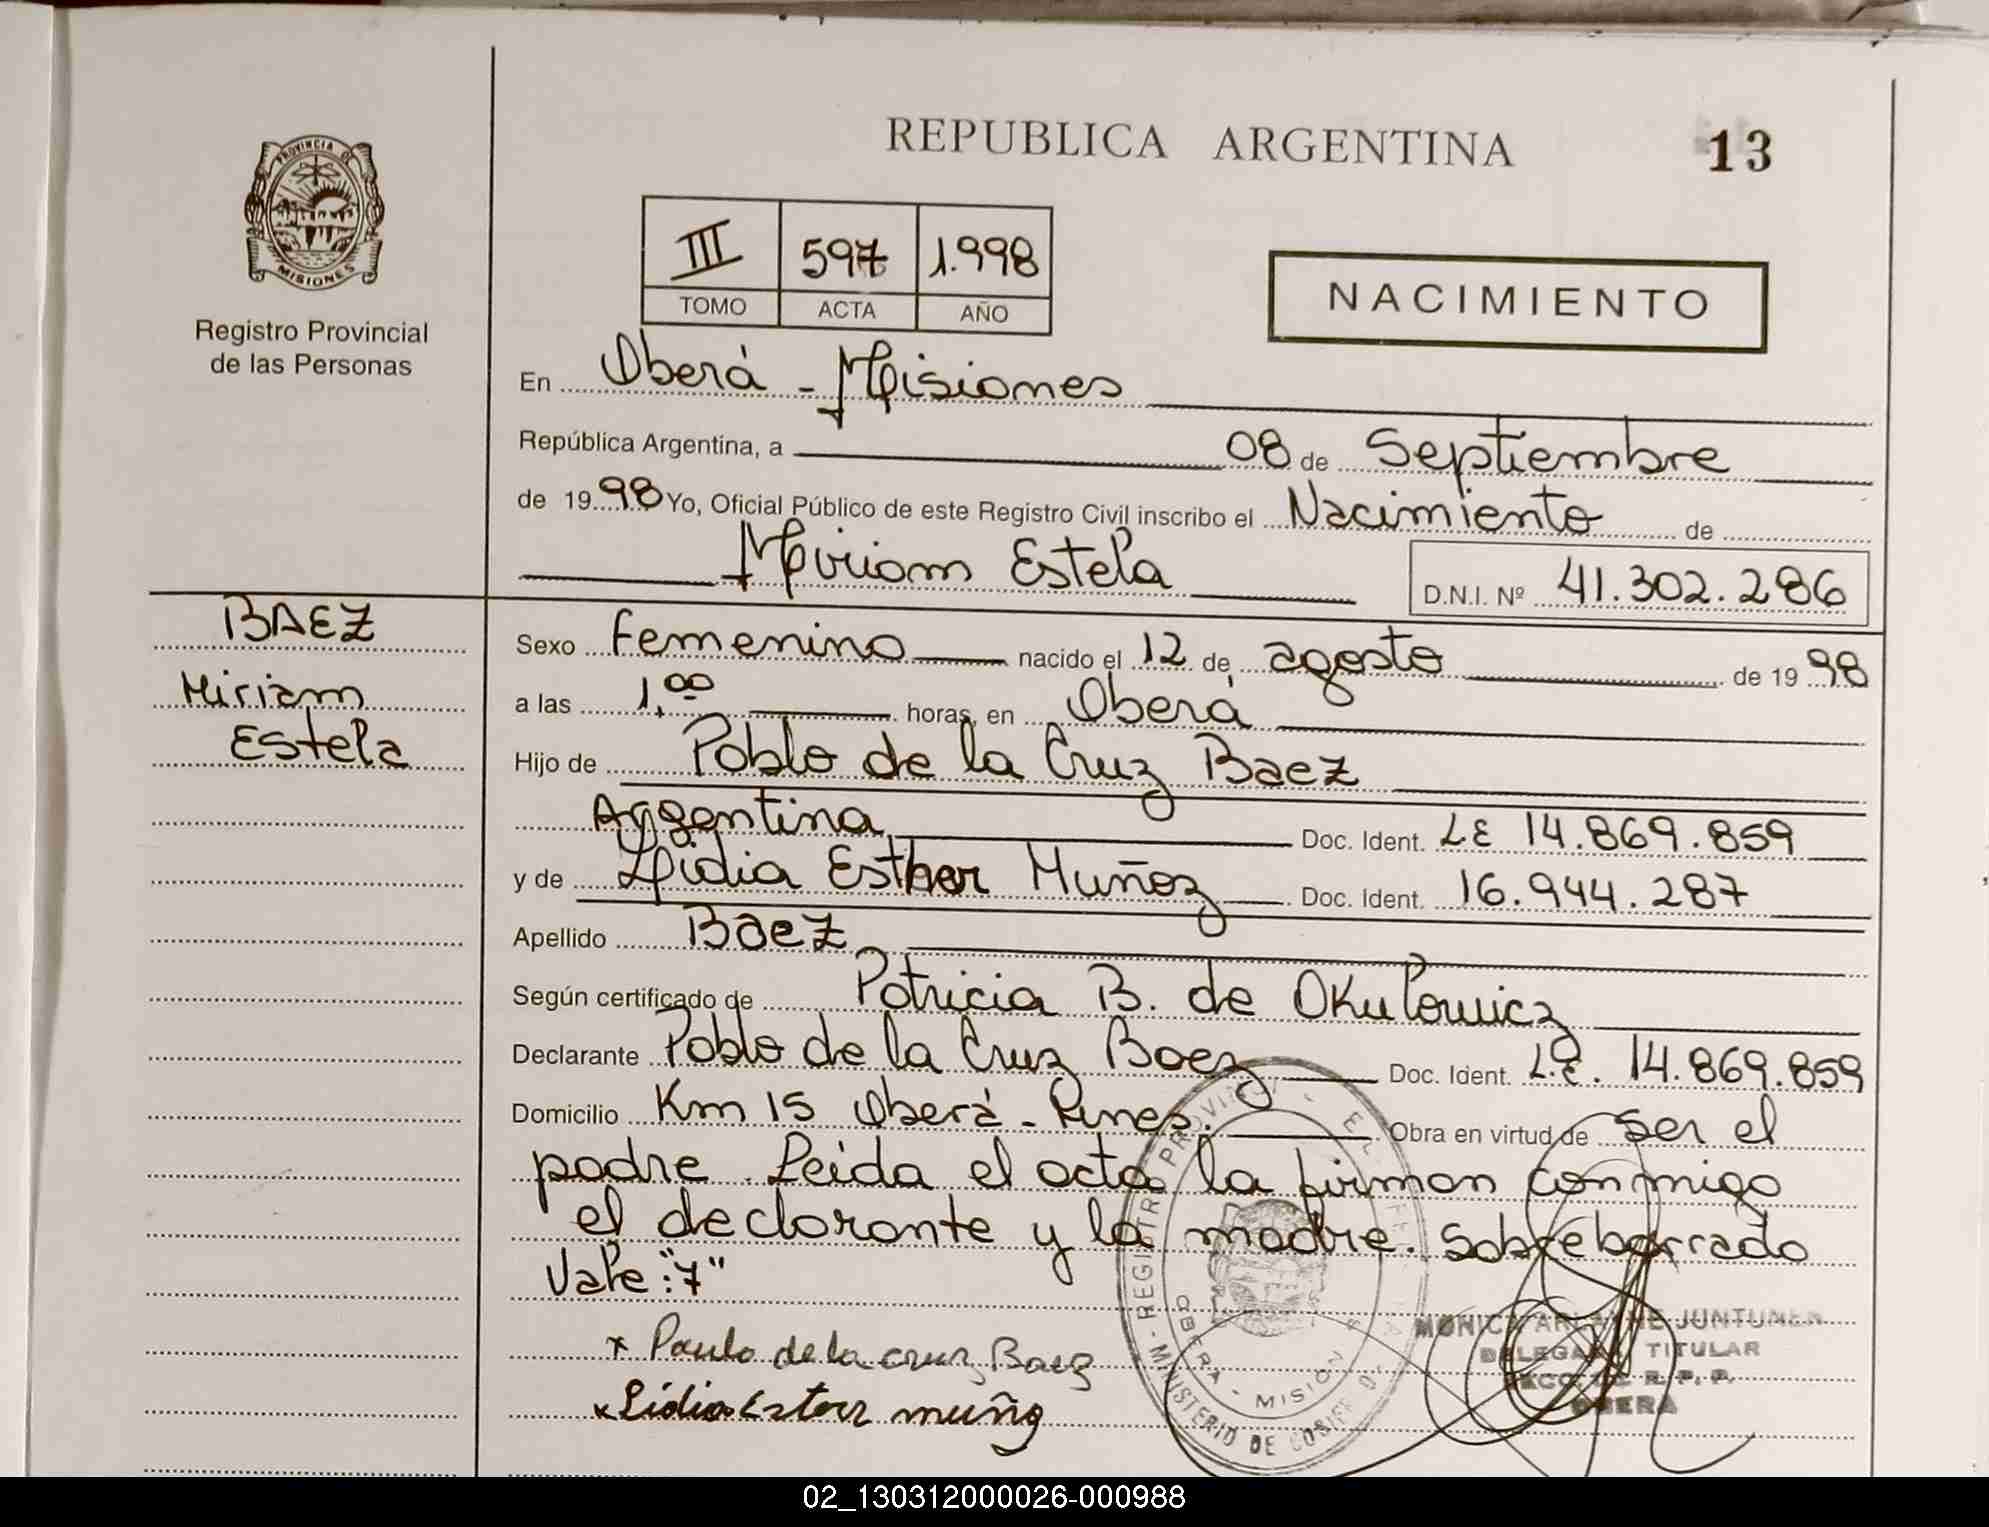 REPUBLICA ARGENTINA
13
PROVINCIA DE
MISIONES
Registro Provincial
de las Personas
III 597 1.998
TOMO ACTA AÑO
NACIMIENTO
En Oberá - Misiones
República Argentina, a 08 de Septiembre
de 19 98 Yo, Oficial Público de este Registro Civil inscribo el Nacimiento de
Miriam Estela
D.N.I. Nº 41.302.286
BAEZ
Miriam
Estela
Sexo Femenino nacido el 12 de agosto de 19 98
a las 1,00 horas, en Oberá
Hijo de Pablo de la Cruz Baez
Argentina Doc. Ident. LE 14.869.859
y de Lidia Esther Muñoz Doc. Ident. 16.944.287
Apellido Baez
Según certificado de Patricia B. de Okulowicz
Declarante Pablo de la Cruz Baez Doc. Ident. L.E. 14.869.859
Domicilio Km 15 Oberá - Mnes. Obra en virtud de ser el
padre. Leida el acta la firman conmigo
el declarante y la madre. Sobreborrado
Vale: "7"
x Paulo de la cruz Baez
x Lidia Ester muño
REGISTRO PROVINCIAL
OBERA - MISIONES
MINISTERIO DE GOBIERNO
MONICA JUNTUNEN
DELEGADA TITULAR
R. P. P.
OBERA
02_130312000026-000988